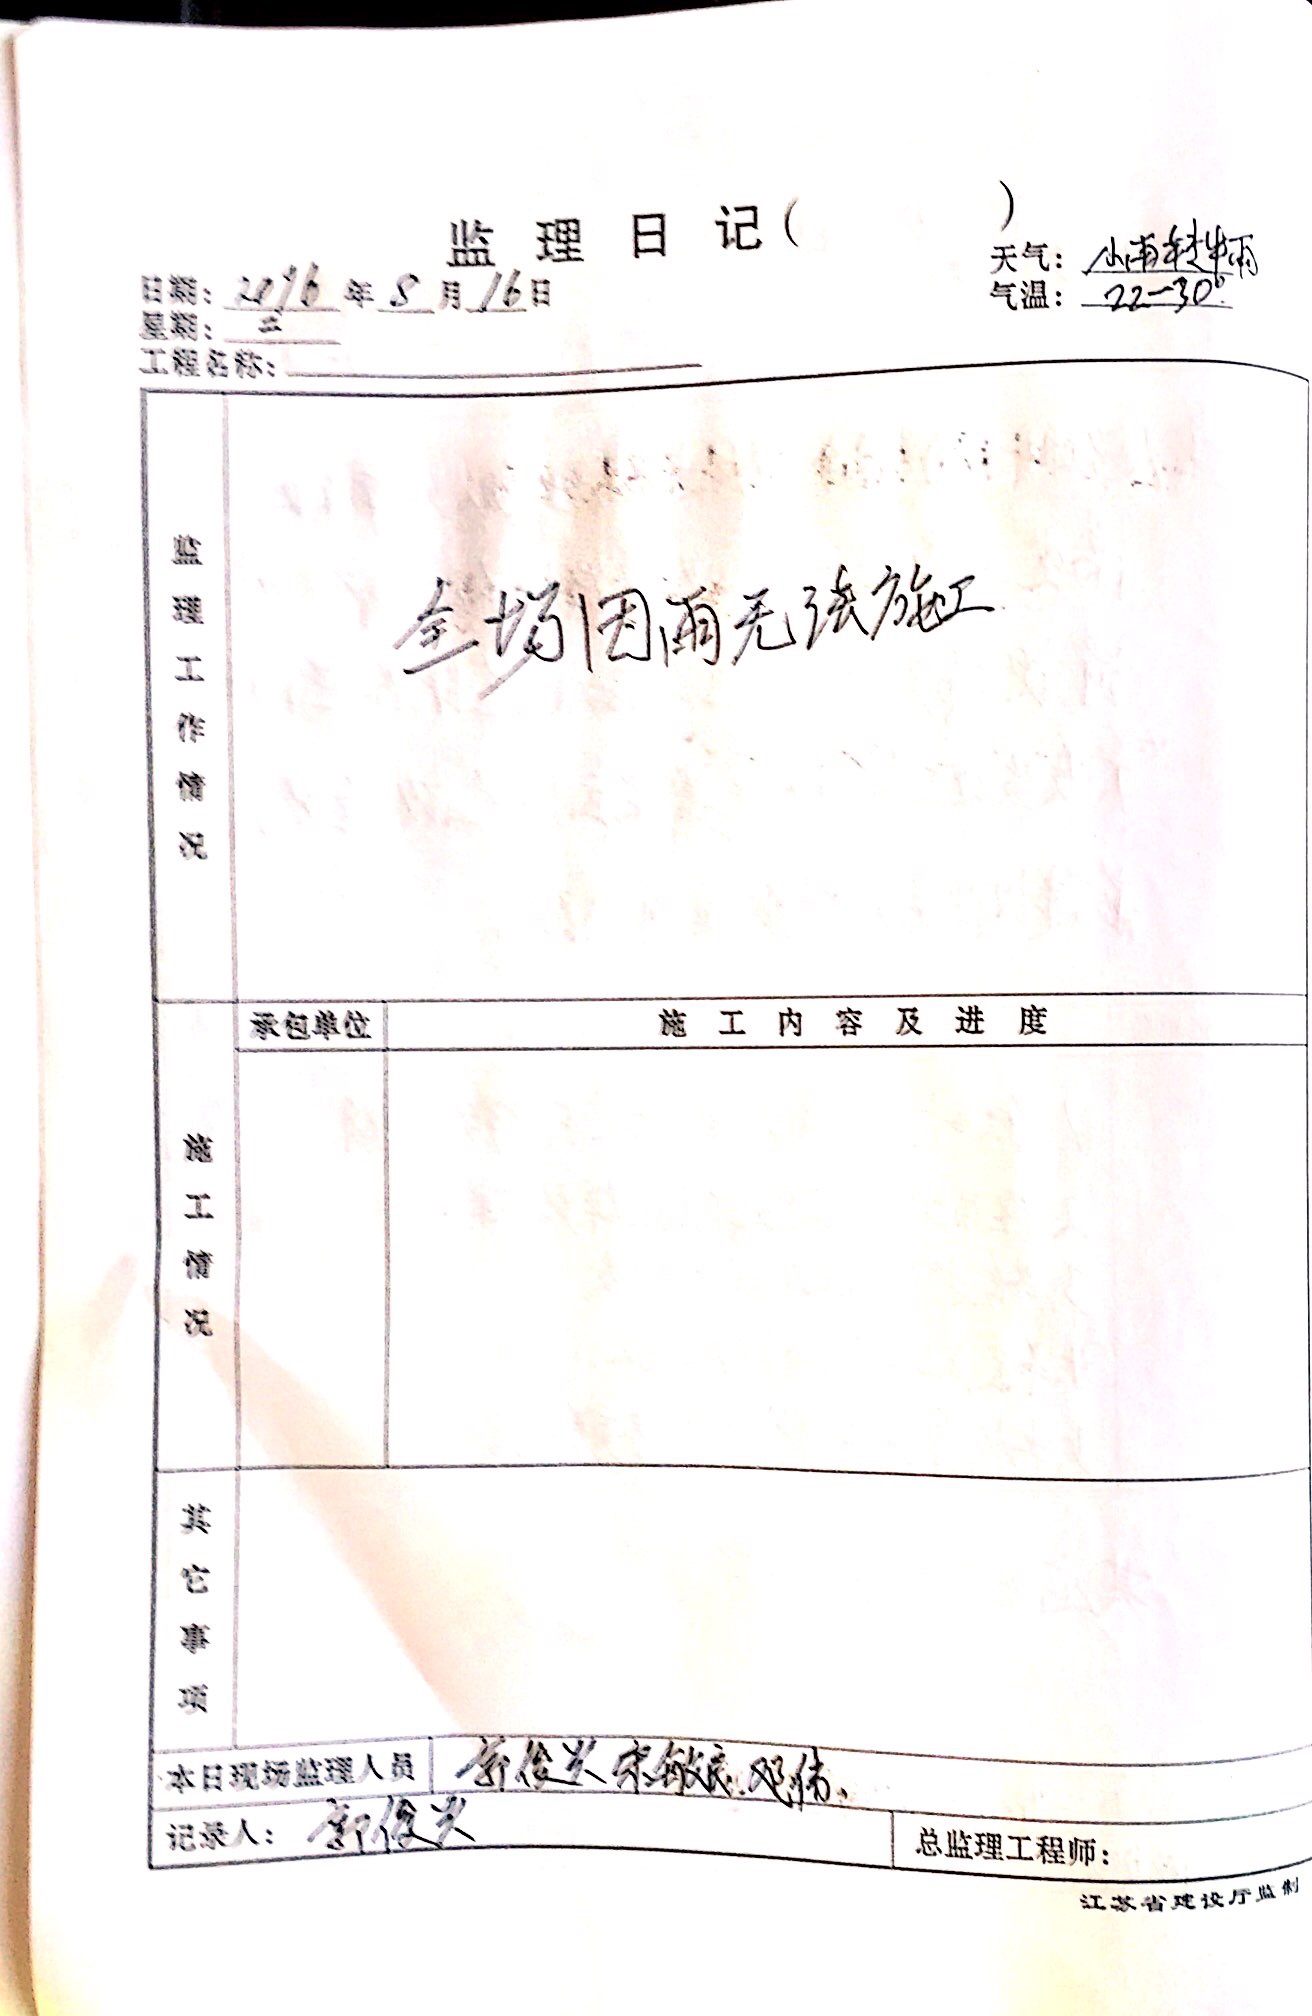 监理日记( )
日期: 2016 年 8 月 16 日
天气: 小雨转中雨
星期: 二
气温: 22-30°
工程名称:
监理工作情况
全场因雨无法施工
承包单位 施工内容及进度
施工情况
其它事项
本日现场监理人员 郭俊兴 宋敏 邓伟
记录人: 郭俊兴
总监理工程师:
江苏省建设厅监制